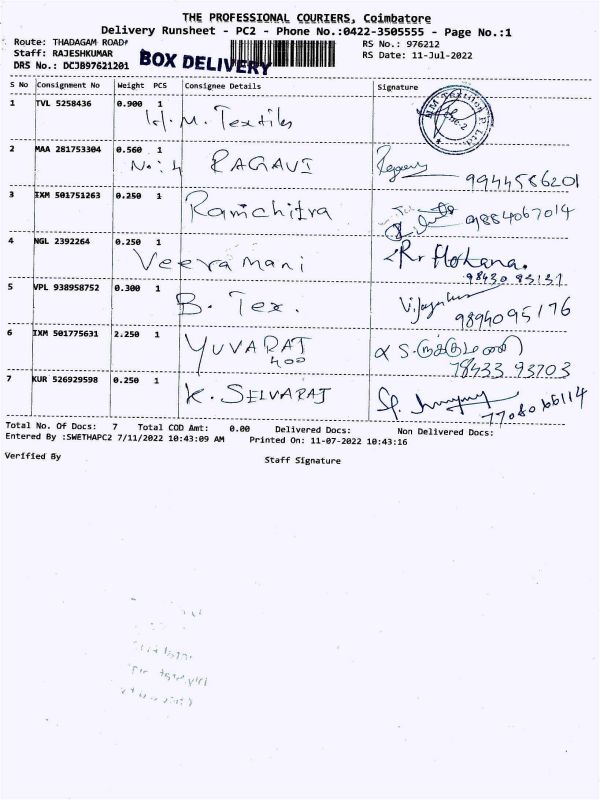 THE PROFESSIONAL COURIERS, Coimbatore
Delivery Runsheet - PC2 - Phone No.:0422-3505555 - Page No.:1
Route: THADAGAM ROAD# RS No.: 976212
Staff: RAJESHKUMAR RS Date: 11-Jul-2022
DRS No.: DCJB97621201 BOX DELIVERY
S No Consignment No Weight PCS Consignee Details Signature
1 TVL 5258436 0.900 1
M. Textiles
2 MAA 281753304 0.560 1
No: 4 RAGAVI 9944586201
3 IXM 501751263 0.250 1
Ramchitra 9884067014
4 NGL 2392264 0.250 1
Veeramani
5 VPL 938958752 0.300 1
B. Tex. 9894095176
6 IXM 501775631 2.250 1
YUVARAJ
400 78433 93703
7 KUR 526929598 0.250 1
K. SELVARAJ
Total No. Of Docs: 7 Total COD Amt: 0.00 Delivered Docs: Non Delivered Docs:
Entered By :SWETHAPC2 7/11/2022 10:43:09 AM Printed On: 11-07-2022 10:43:16
Verified By Staff Signature